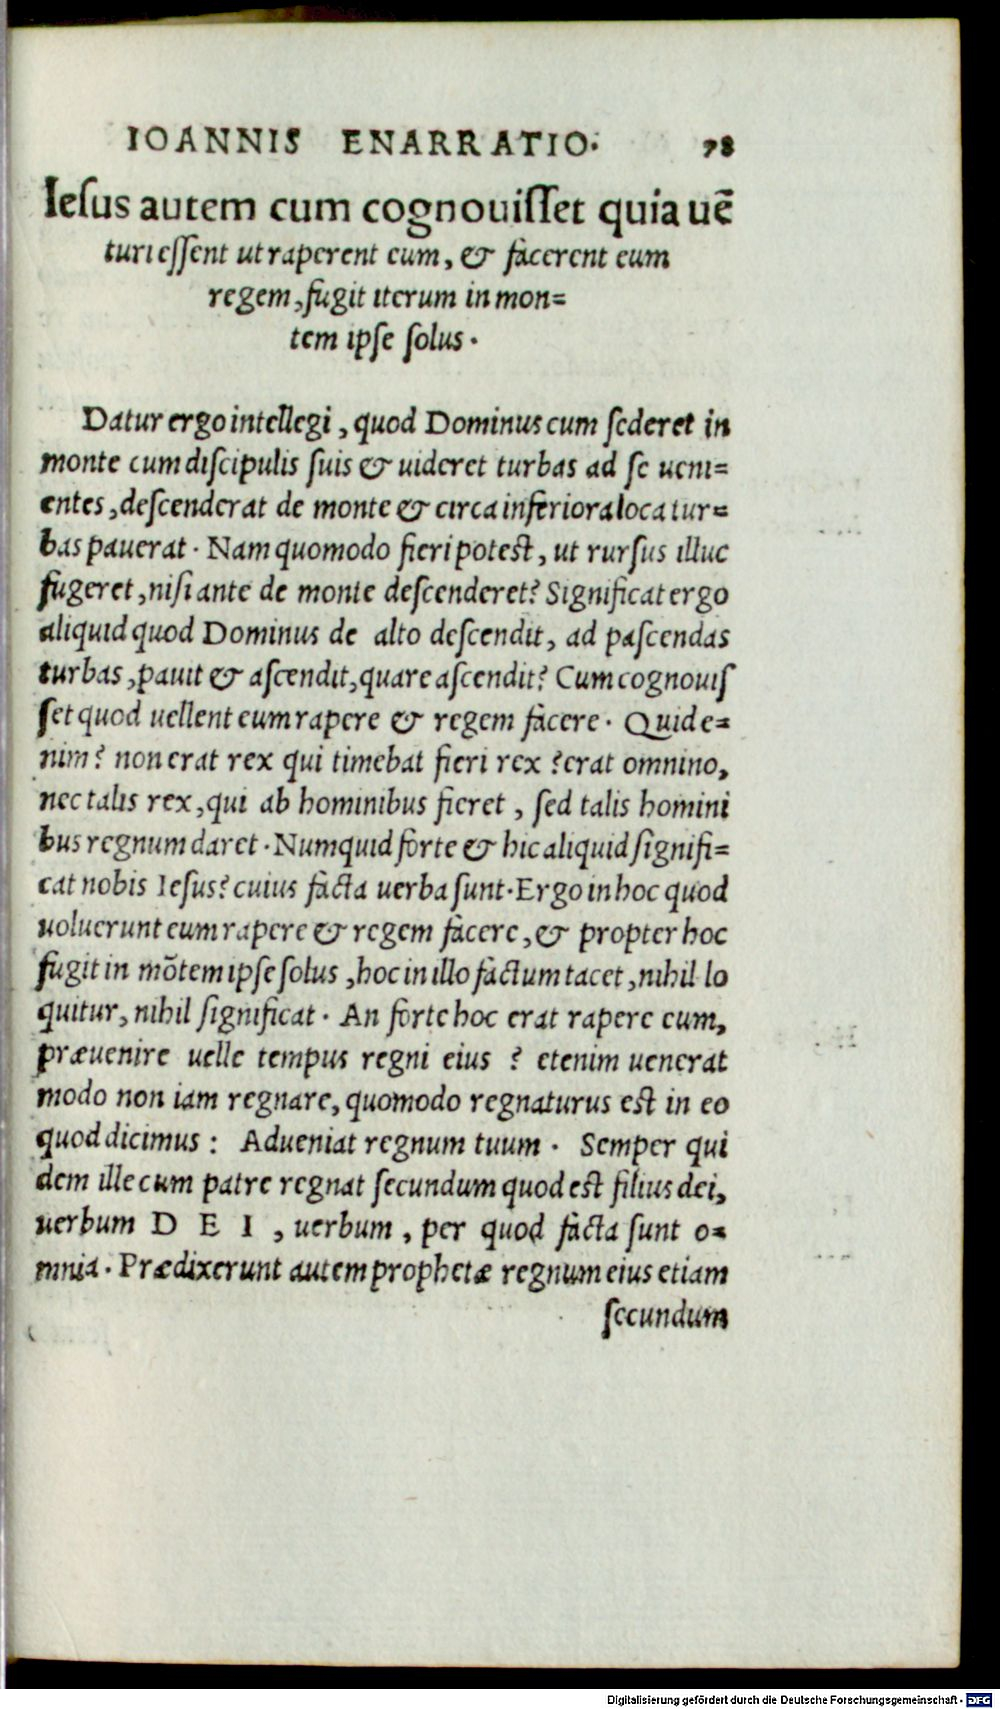 IOANNIS ENARRATIO. 78
Iesus autem cum cognouisset quia uẽ
turi essent ut raperent eum, & facerent eum
regem, fugit iterum in mon=
tem ipse solus.
Datur ergo intellegi, quod Dominus cum sederet in
monte cum discipulis suis & uideret turbas ad se ueni=
entes, descenderat de monte & circa inferiora loca tur=
bas pauerat. Nam quomodo fieri potest, ut rursus illuc
fugeret, nisi ante de monte descenderet? Significat ergo
aliquid quod Dominus de alto descendit, ad pascendas
turbas, pauit & ascendit, quare ascendit? Cum cognouis
set quod uellent eum rapere & regem facere. Quid e=
nim? non erat rex qui timebat fieri rex? erat omnino,
nec talis rex, qui ab hominibus fieret, sed talis homini
bus regnum daret. Numquid forte & hic aliquid signifi=
cat nobis Iesus? cuius facta uerba sunt. Ergo in hoc quod
uoluerunt eum rapere & regem facere, & propter hoc
fugit in mõtem ipse solus, hoc in illo factum tacet, nihil lo
quitur, nihil significat. An forte hoc erat rapere eum,
præuenire uelle tempus regni eius? etenim uenerat
modo non iam regnare, quomodo regnaturus est in eo
quod dicimus: Adueniat regnum tuum. Semper qui
dem ille cum patre regnat secundum quod est filius dei,
uerbum D E I, uerbum, per quod facta sunt o=
mnia. Prædixerunt autem prophetæ regnum eius etiam
secundum
Digitalisierung gefördert durch die Deutsche Forschungsgemeinschaft - DFG